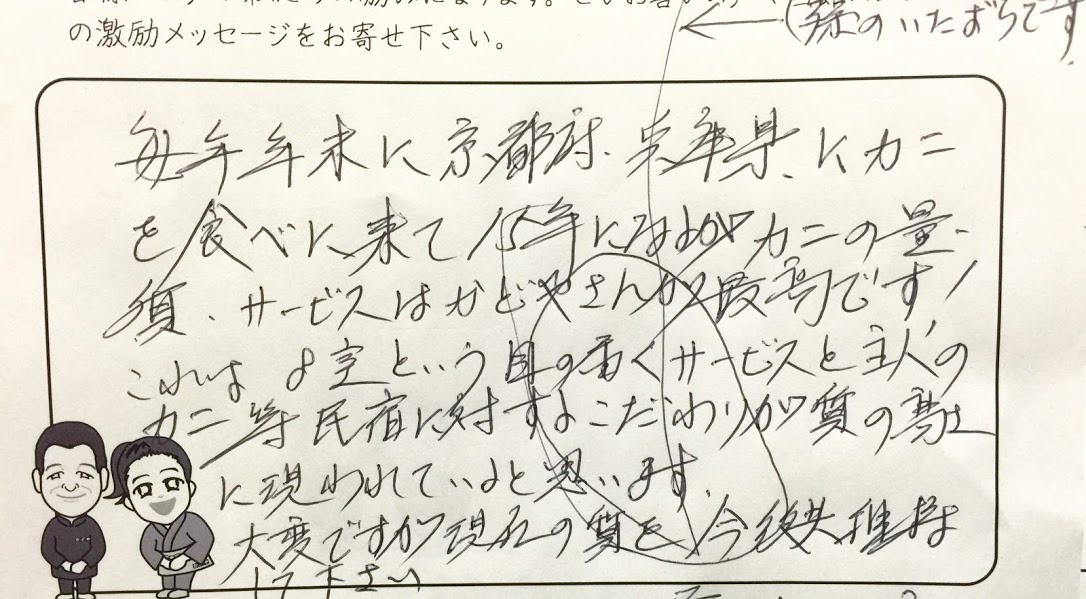 の激励メッセージをお寄せ下さい。
のいたずらです
毎年年末に京都府、兵庫県、にカニ
を食べに来て15年になるがカニの量、
質、サービスはかどやさんが最高です!
これは8室という目の届くサービスと主人の
カニ等民宿に対するこだわりが質の高さ
に現われていると思います。
大変ですが現在の質を今後共維持
して下さい